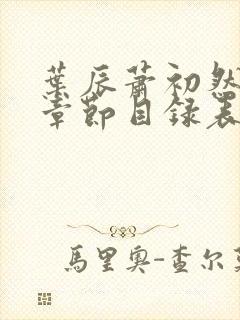 葉辰蕭初然
章節目錄表
馬里奧-查尔